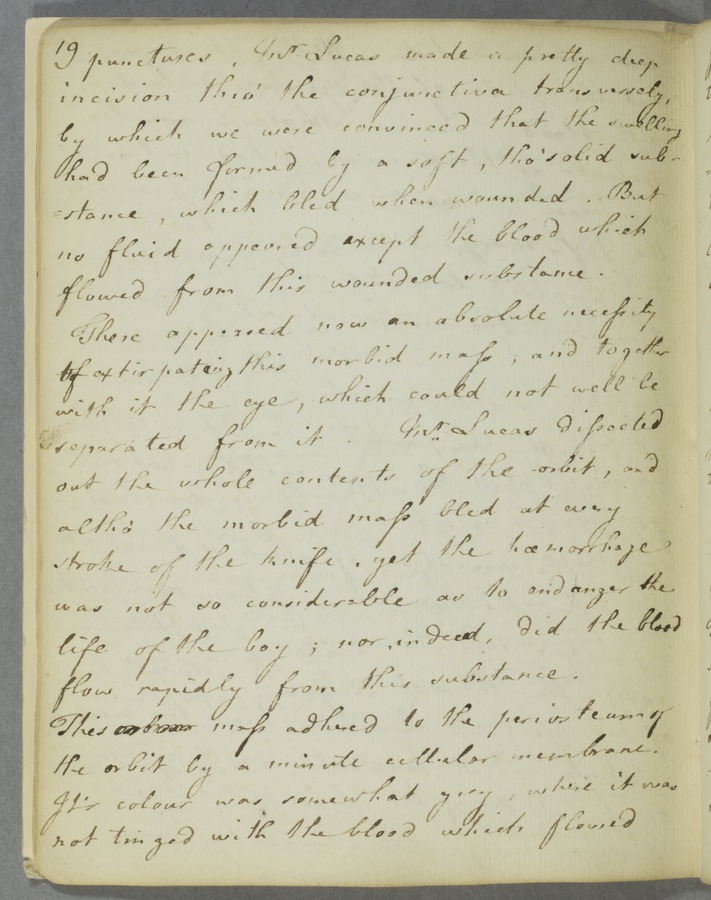 19 punctures. Mr Lucas made a pretty deep
incision thro' the conjunctiva transversely,
by which we were convinced that the swelling
had been formed by a soft, tho' solid sub-
=stance, which bled when wounded. But
no fluid appeared except the blood which
flowed from this wounded substance.
There appeared now an absolute necessity
of extirpating this morbid mass, and together
with it the eye, which could not well be
separated from it. Mr. Lucas dissected
out the whole contents of the orbit, and
altho' the morbid mass bled at every
stroke of the knife, yet the hœmorrhage
was not so considerable as to endanger the
life of the boy; nor, indeed, did the blood
flow rapidly from this substance.
This mass adhered to the periosteum of
the orbit by a minute cellular membrane.
It's colour was somewhat grey, where it was
not tinged with the blood which flowed